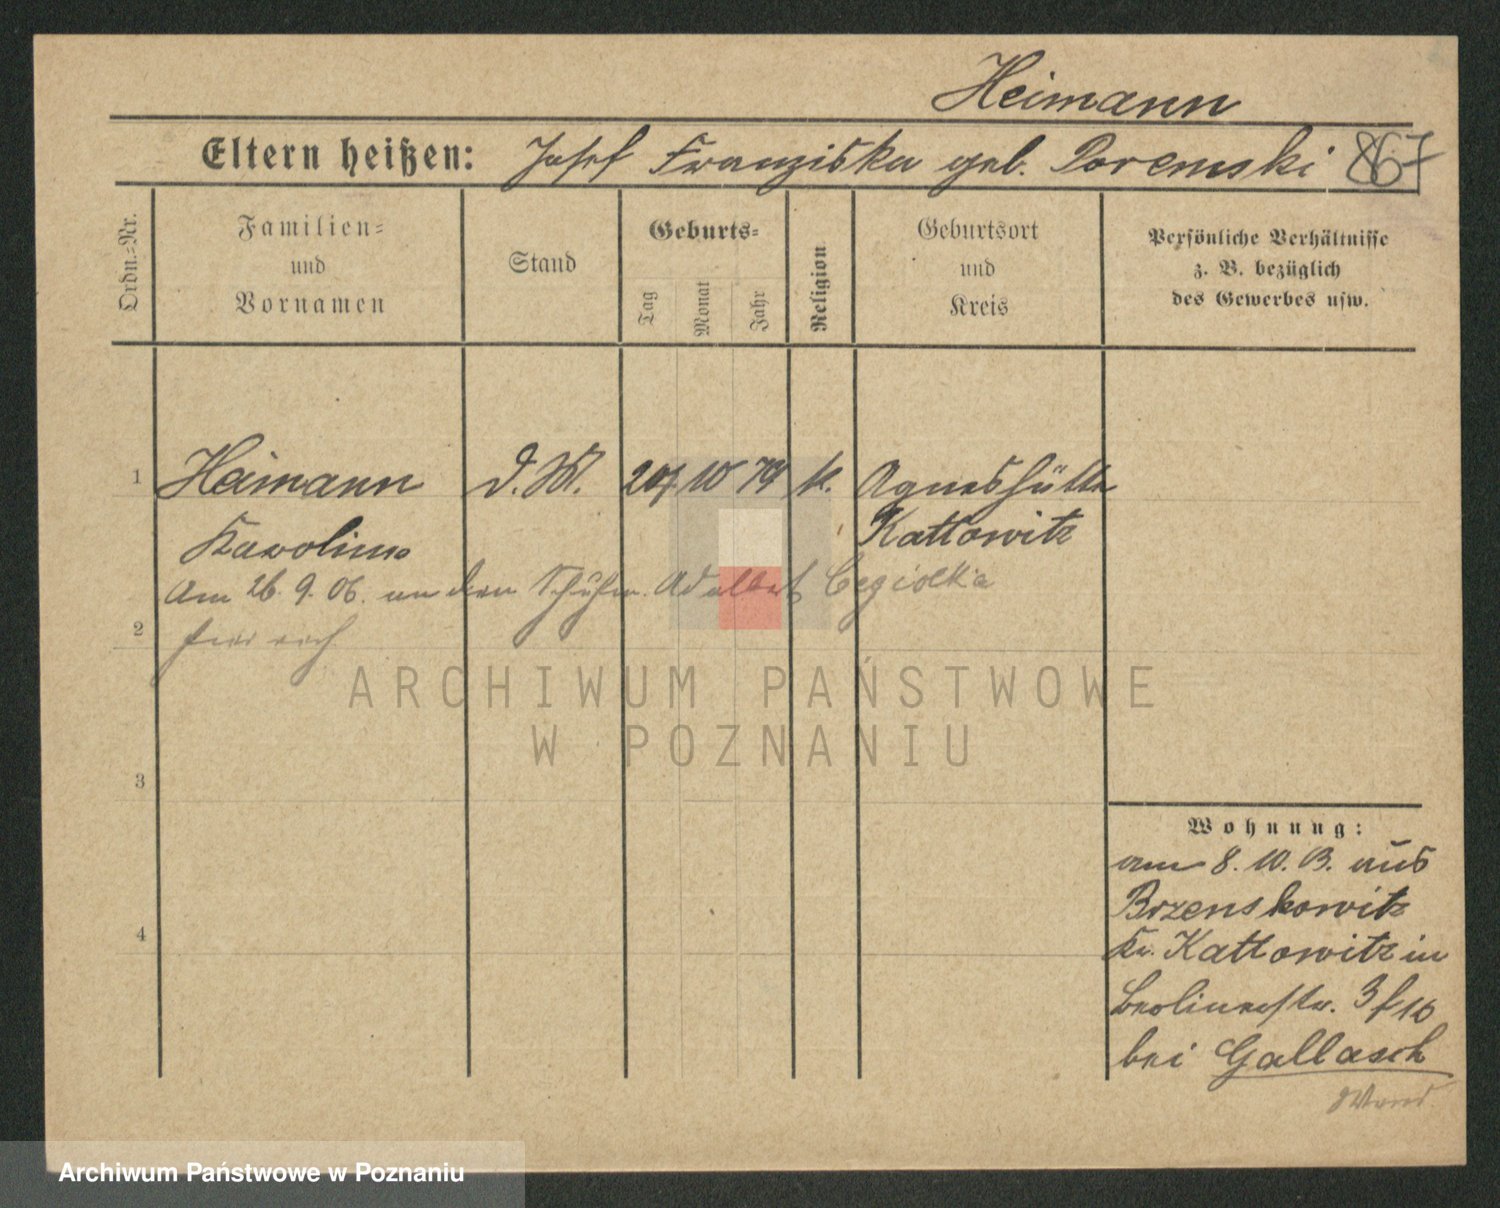 Heimann
Eltern heißen: Josef Franziska geb. Poremski 867
Ordn.-Nr.
Familien-
und
Vornamen
Stand
Geburts-
Tag
Monat
Jahr
Religion
Geburtsort
und
Kreis
Persönliche Verhältnisse
z. B. bezüglich
des Gewerbes usw.
1 Heimann D.M. 20. 10 79 k. Agneshütte
Karoline Kattowitz
Am 26. 9. 06. an den Schuhm. Adalbert Cegiolka
2
3
4
ARCHIWUM PAŃSTWOWE
W POZNANIU
Wohnung:
am 8. 10. 03. aus
Brzenskowitz
Kr. Kattowitz in
Berlinerstr. 3
bei Gallasch
Archiwum Państwowe w Poznaniu